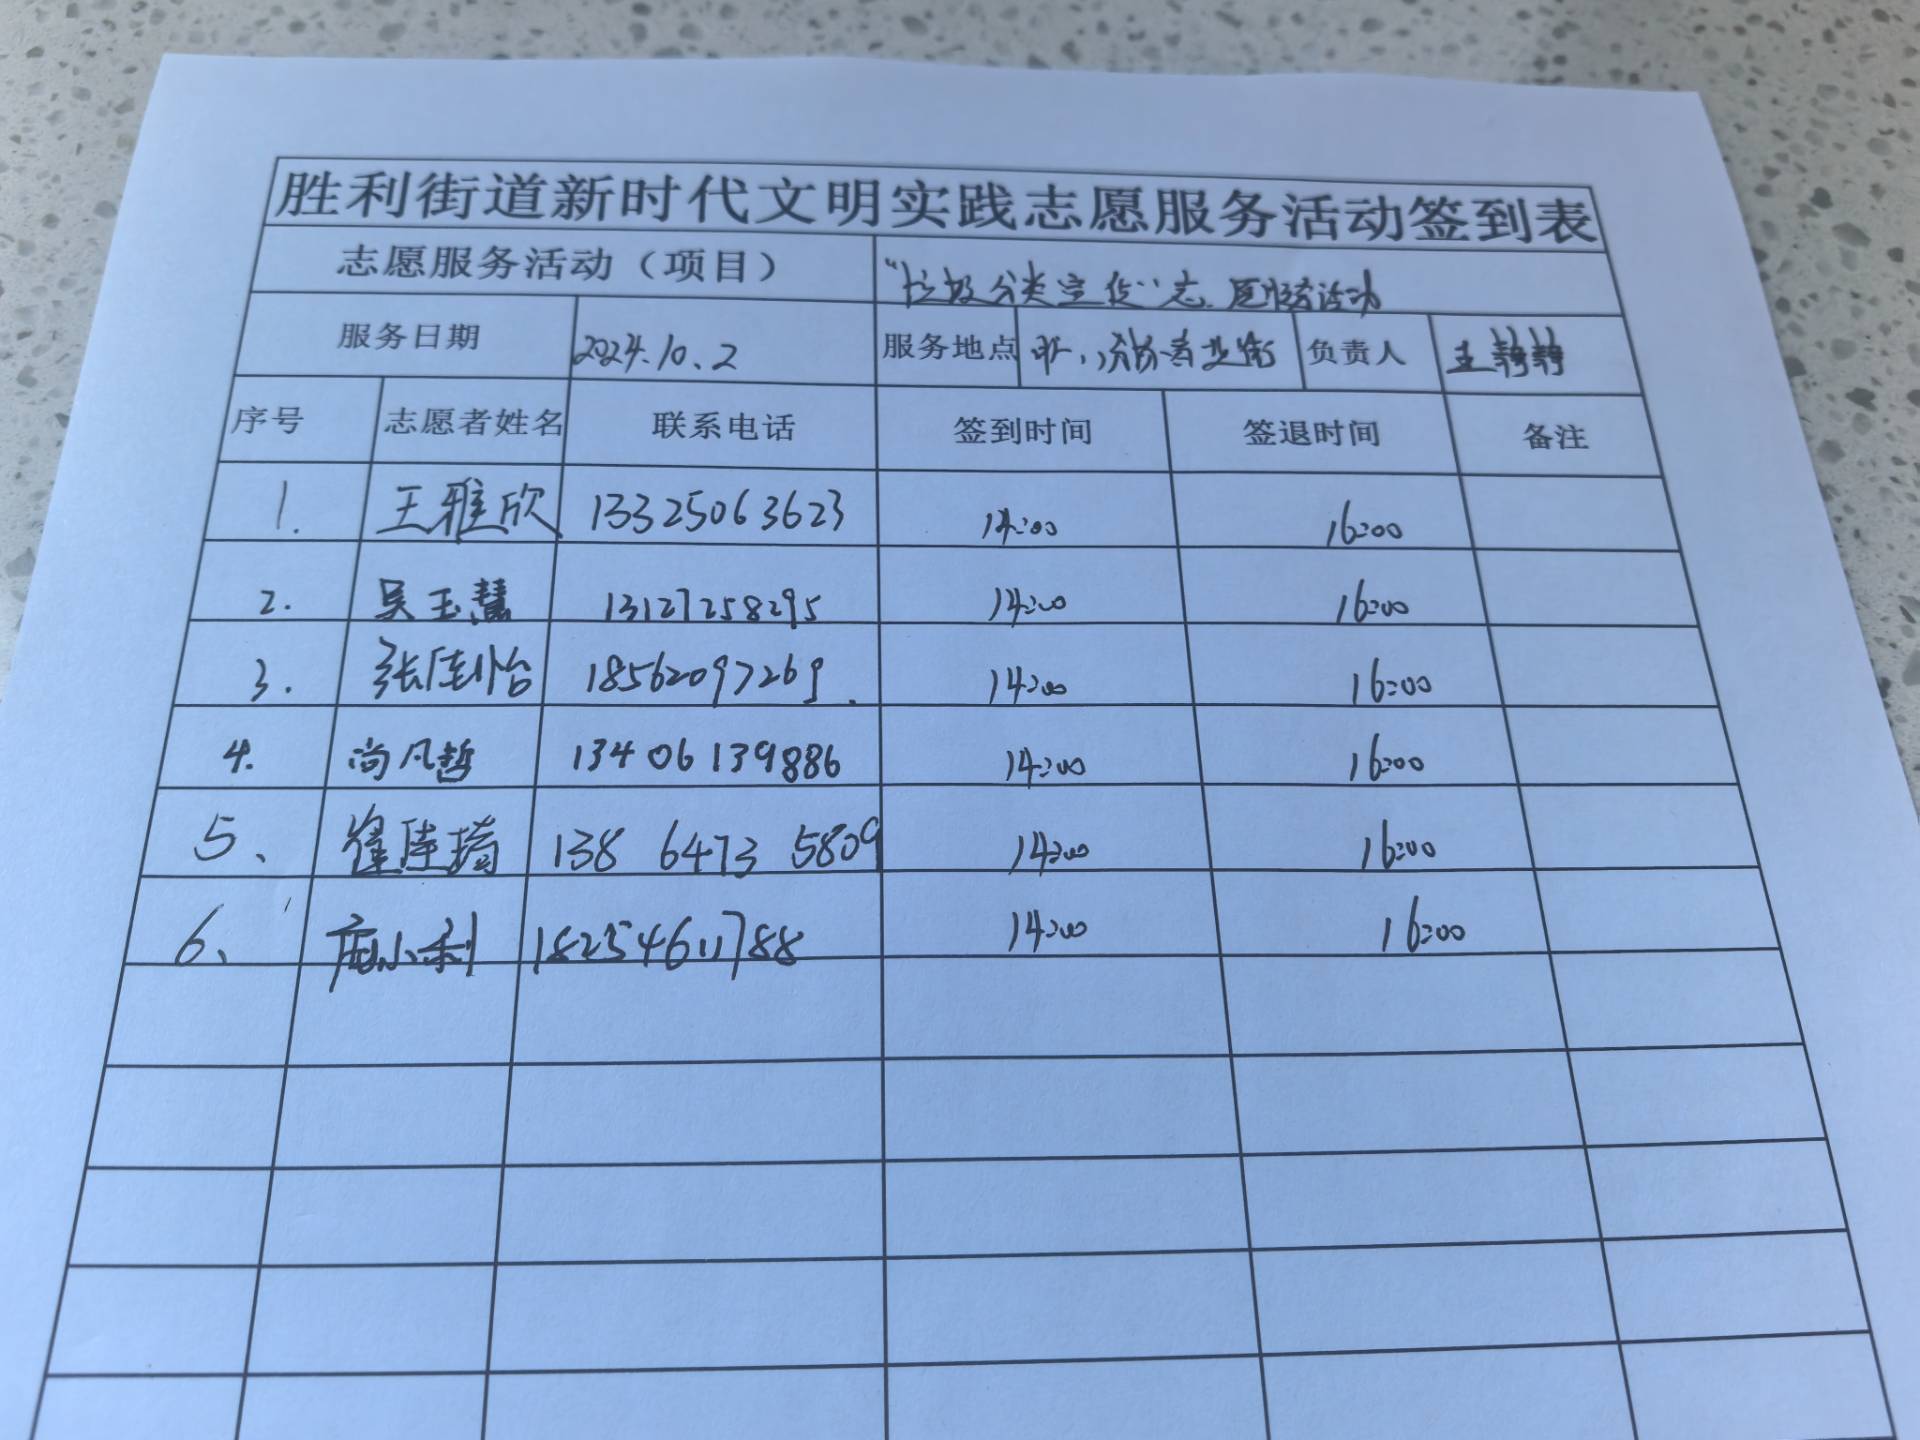 胜利街道新时代文明实践志愿服务活动签到表
志愿服务活动（项目） “垃圾分类宣传”志愿服务活动
服务日期 2024.10.2 服务地点 商业街 负责人 王静静
序号 志愿者姓名 联系电话 签到时间 签退时间 备注
1. 王雅欣 13325063623 14:00 16:00
2. 吴玉慧 13127258295 14:00 16:00
3. 张佳怡 18562097269. 14:00 16:00
4. 尚凡哲 13406139886 14:00 16:00
5、 崔佳琦 138 6473 5809 14:00 16:00
6、 小利 18254611788 14:00 16:00